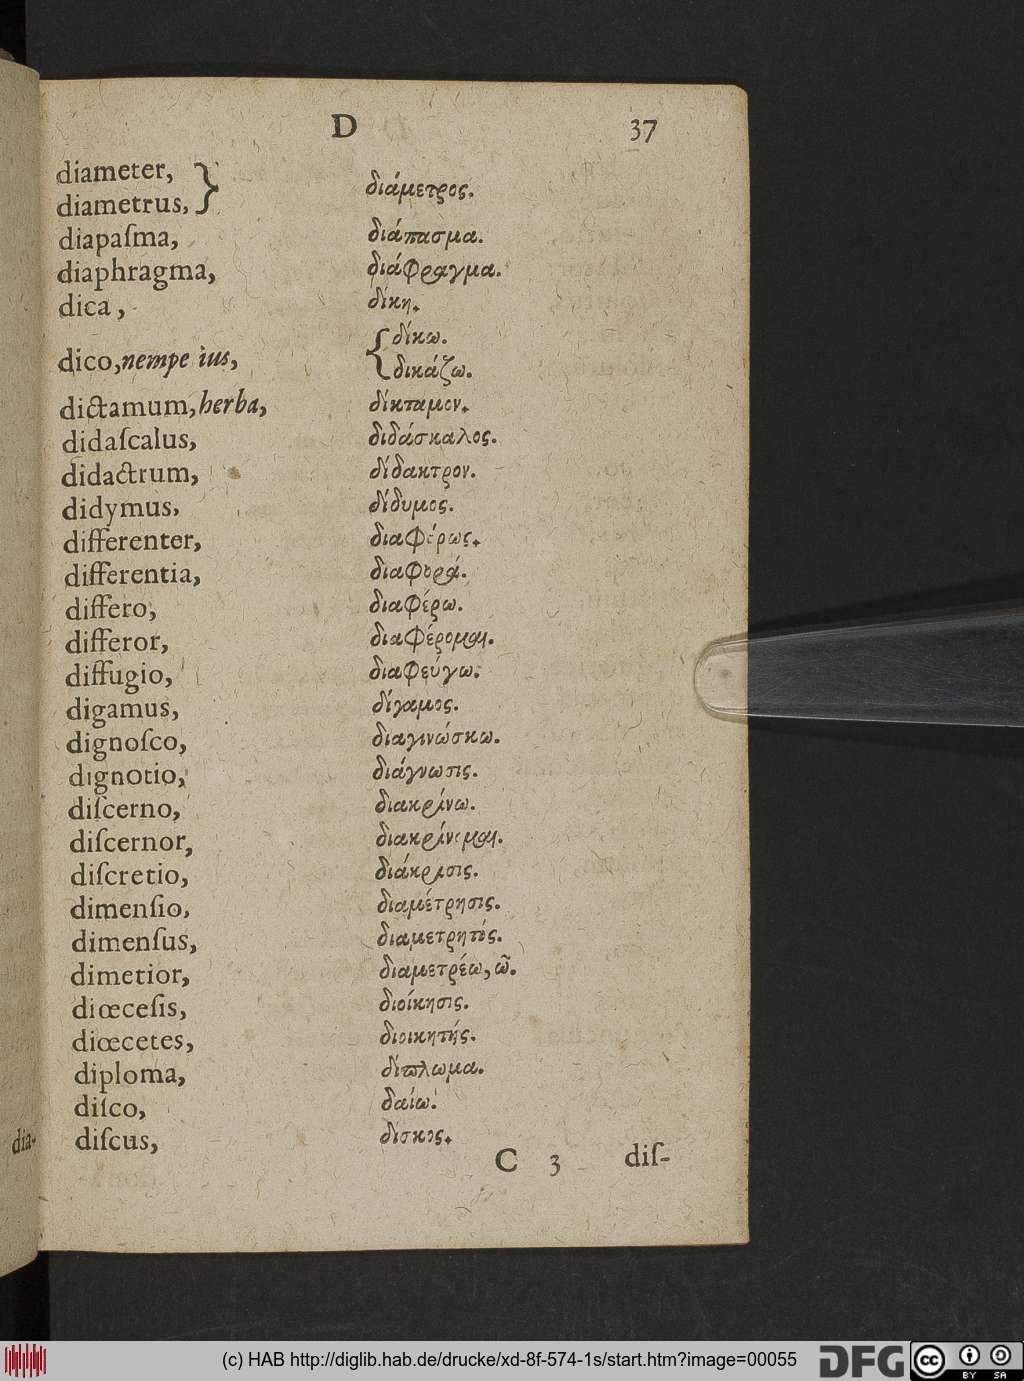 D 37
diameter, } διάμετρος.
diametrus,
diapaſma, διάπασμα.
diaphragma, διάφραγμα.
dica, δίκη.
dico, nempe ius, { δίκω.
δικάζω.
dictamum, herba, δίκταμον.
didaſcalus, διδάσκαλος.
didactrum, δίδακτρον.
didymus, δίδυμος.
differenter, διαφέρως.
differentia, διαφορά.
differo, διαφέρω.
differor, διαφέρομαι.
diffugio, διαφεύγω.
digamus, δίγαμος.
dignoſco, διαγινώσκω.
dignotio, διάγνωσις.
diſcerno, διακρίνω.
diſcernor, διακρίνομαι.
diſcretio, διάκρισις.
dimenſio, διαμέτρησις.
dimenſus, διαμετρητός.
dimetior, διαμετρέω, ῶ.
diœceſis, διοίκησις.
diœcetes, διοικητής.
diploma, δίπλωμα.
diſco, δαίω.
diſcus, δίσκος.
C 3 diſ-
dia-
(c) HAB http://diglib.hab.de/drucke/xd-8f-574-1s/start.htm?image=00055
DFG
cc BY SA